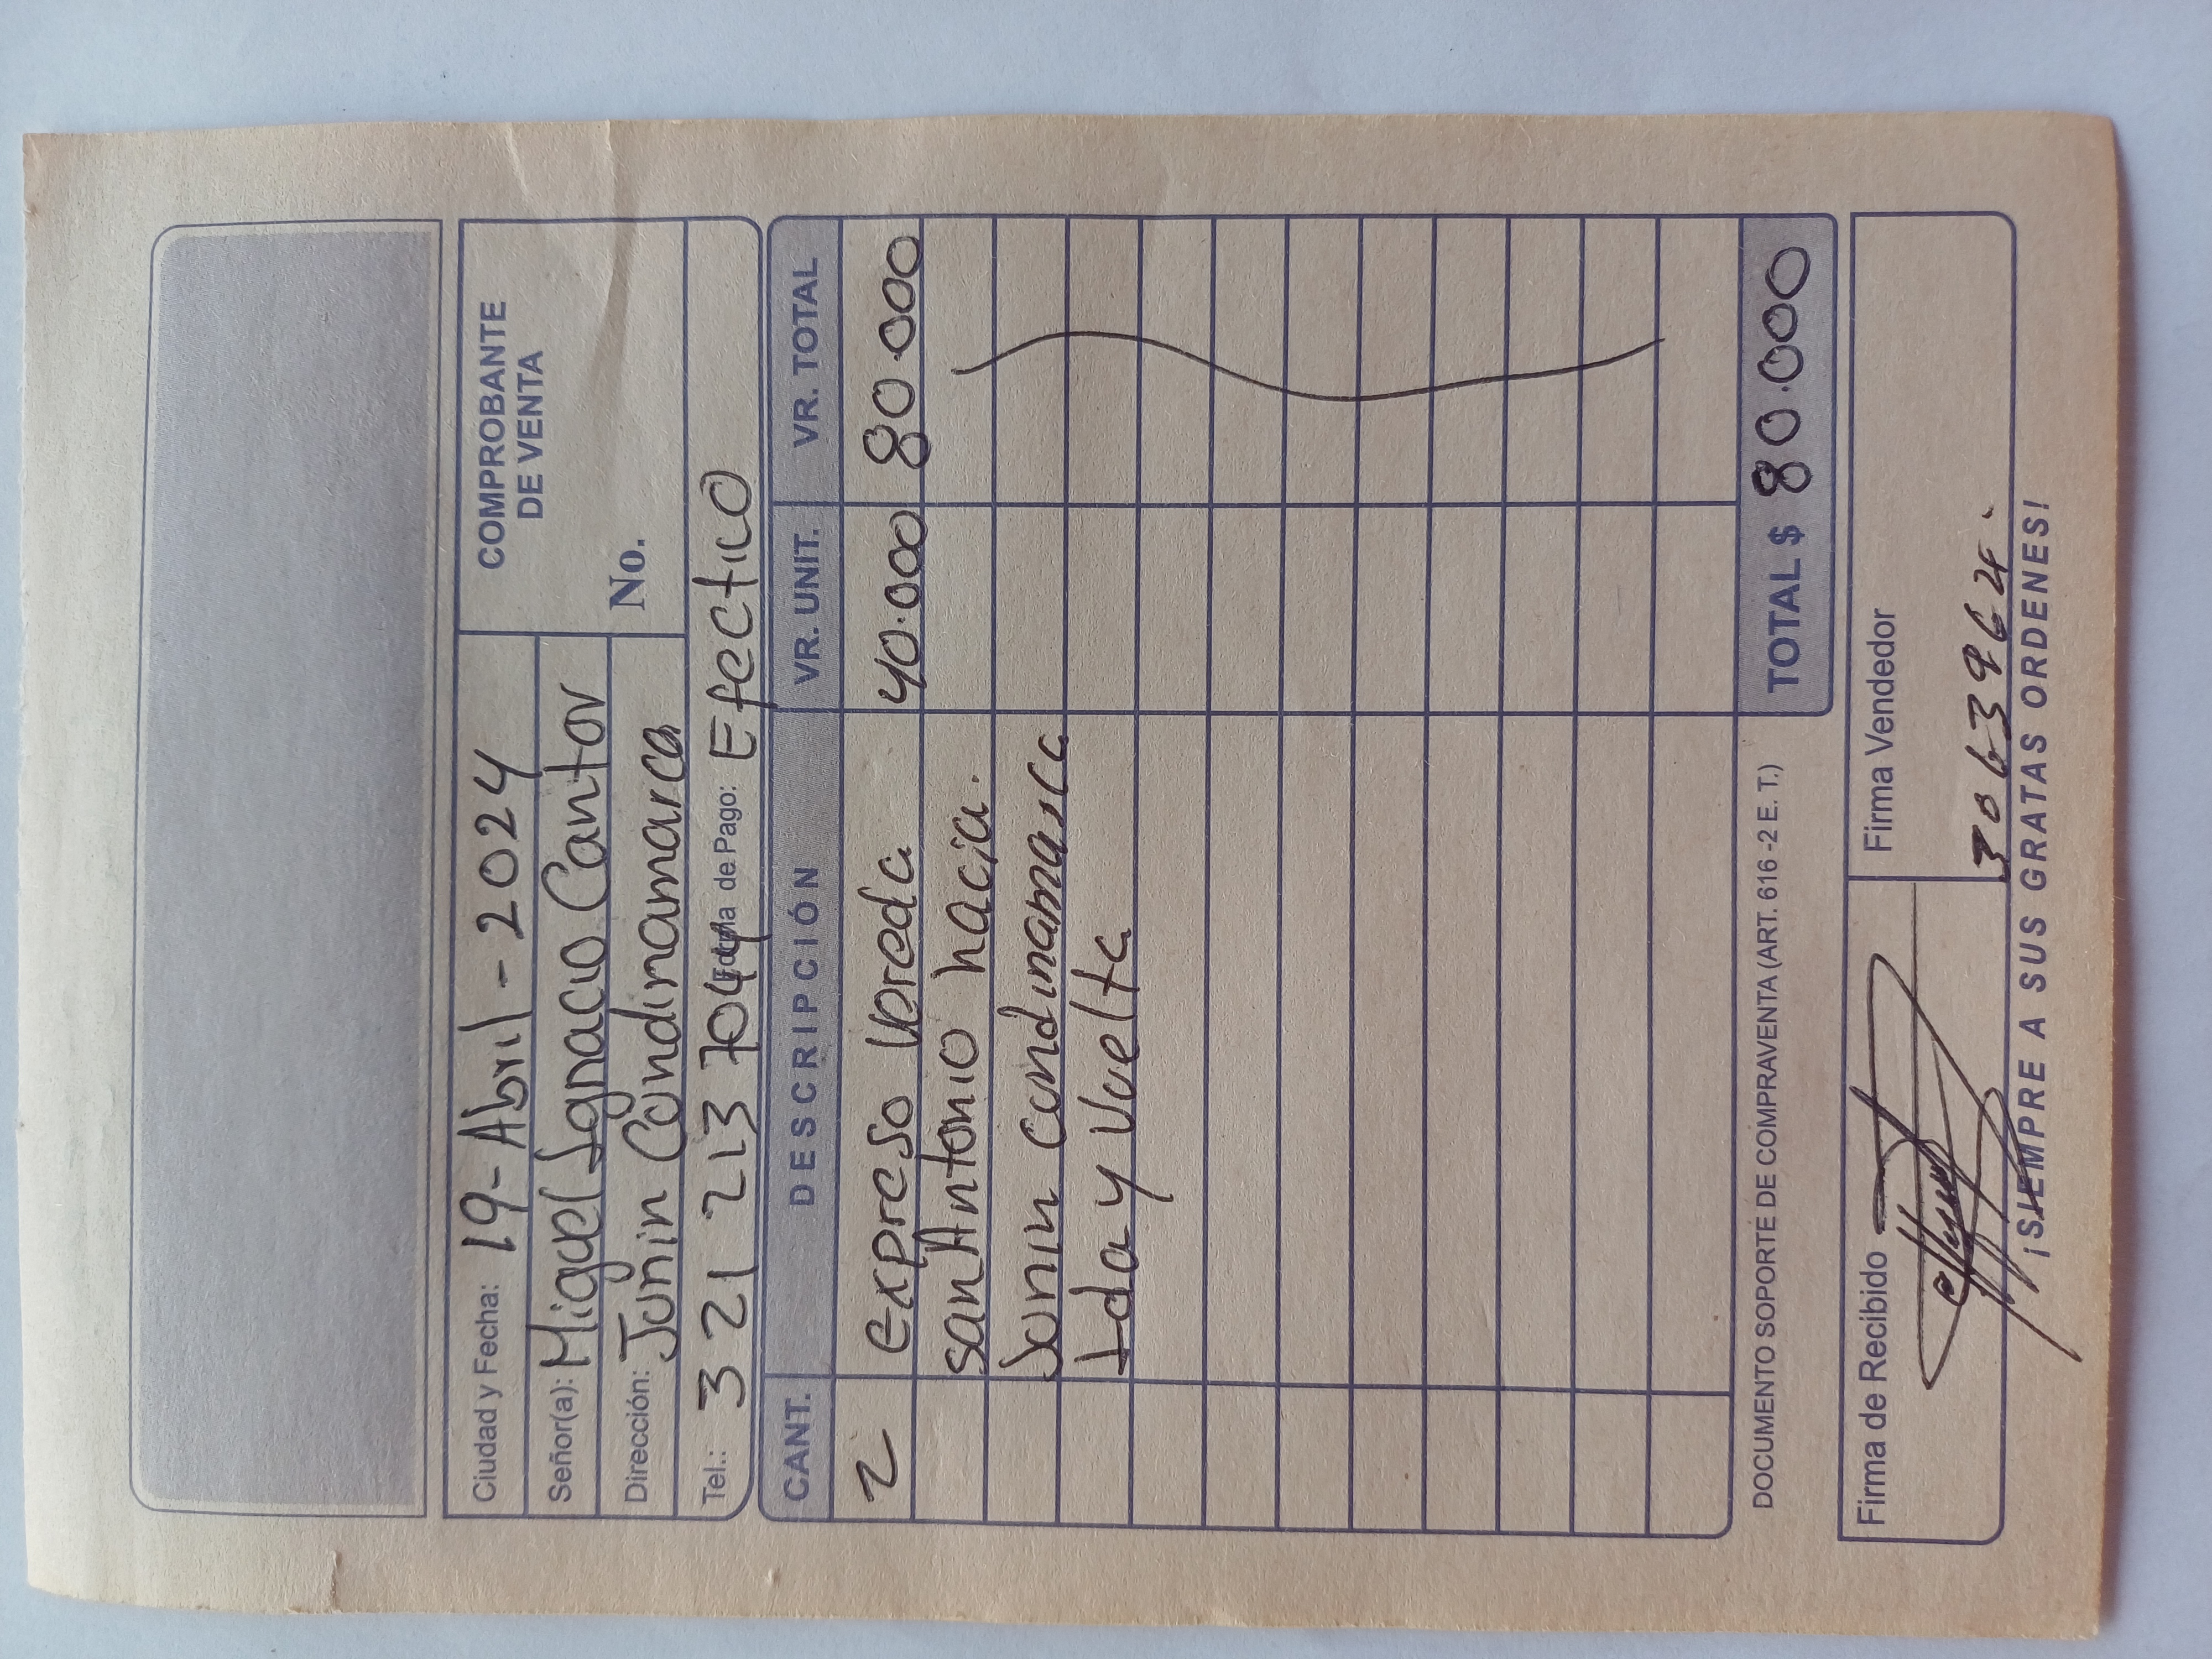 COMPROBANTE
DE VENTA
Ciudad y Fecha: 19-Abril-2024
Señor(a): Miguel Ignacio Cantor
No.
Dirección: Junin Cundinamarca
Tel.: 321 213 7044 Forma de Pago: Efectivo
CANT. DESCRIPCIÓN VR. UNIT. VR. TOTAL
2 expreso Vereda 40.000 80.000
san Antonio hacia.
Junin cundinamarca
Ida y Vuelta
DOCUMENTO SOPORTE DE COMPRAVENTA (ART. 616 -2 E. T.) TOTAL $ 80.000
Firma de Recibido Firma Vendedor
¡SIEMPRE A SUS GRATAS ORDENES!